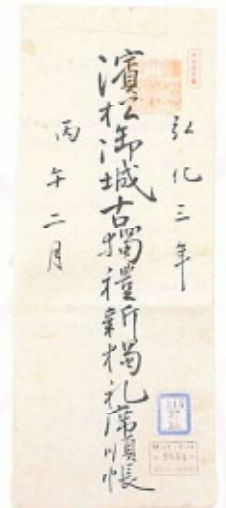 弘化三年
濱松御城古獨禮新獨礼席順帳
丙午二月